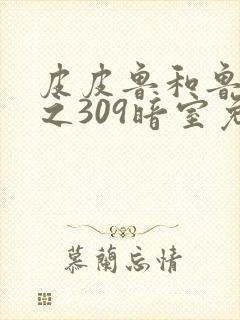 皮皮鲁和鲁
之309暗室
慕蘭忘情